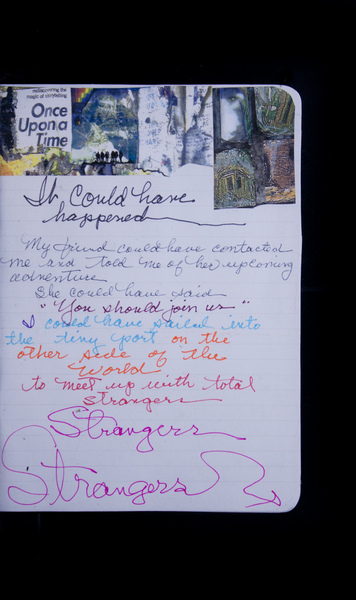 rediscovering the
magic of storytelling
Once
Upon a
Time
It Could have
happened
My friend could have contacted
me and told me of her upcoming
adventure
She could have said
"You should join us"
I could have sailed into
the tiny port on the
other side of the
World
to meet up with total
strangers
Strangers
Strangers